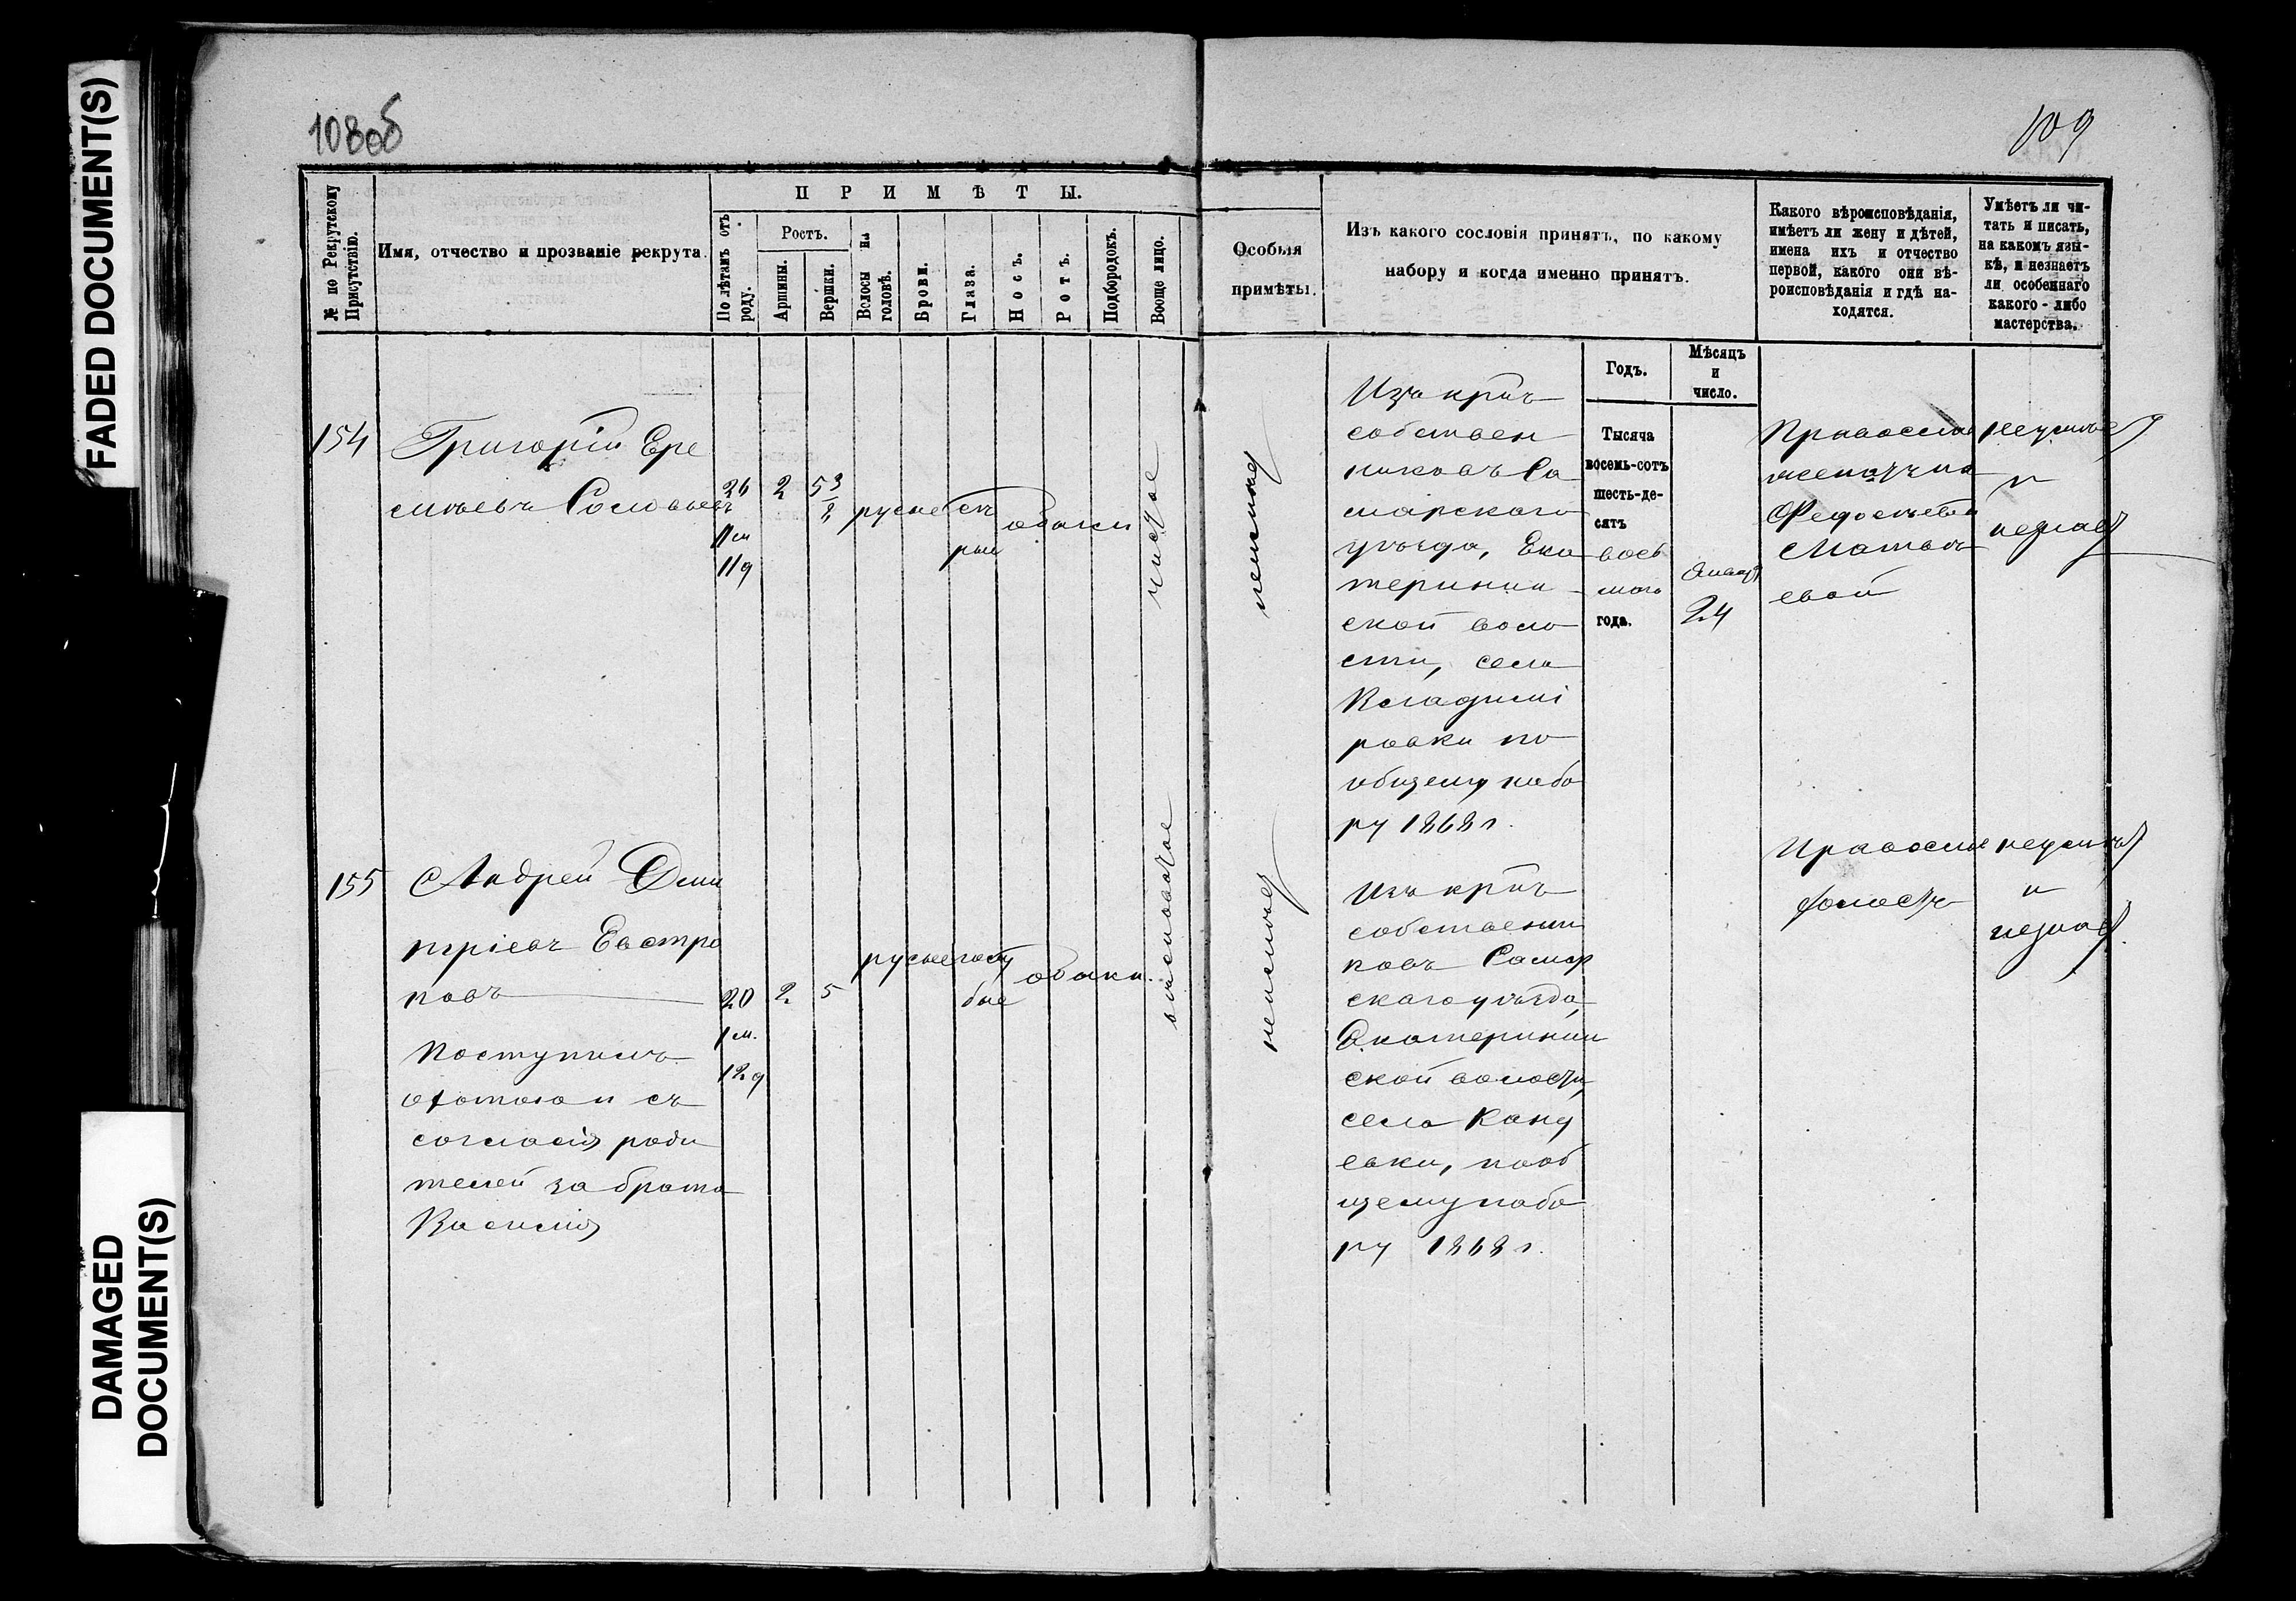 FADED DOCUMENT(S)
DAMAGED
DOCUMENT(S)
108об
109
№ по Рекрутскому
Присутствію.
Имя, отчество и прозваніе рекрута.
ПРИМѢТЫ.
По лѣтамъ отъ
роду.
Ростъ.
Аршины.
Вершки.
Волосы на
головѣ.
Брови.
Глаза.
Носъ.
Ротъ.
Подбородокъ.
Вооще лицо.
Особыя
примѣты.
Изъ какого сословія принятъ, по какому
набору и когда именно принятъ.
Какого вѣроисповѣданія,
имѣетъ ли жену и дѣтей,
имена ихъ и отчество
первой, какого они вѣ-
роисповѣданія и гдѣ на-
ходятся.
Умѣетъ ли чи-
тать и писать,
на какомъ язы-
кѣ, и незнаетъ
ли особеннаго
какого-либо
мастерства.
Годъ.
Мѣсяцъ
и
число.
154
Григорій Ере
мѣевъ Соловьевъ
26
11 м
11 д
2
5 3/8
русые
сѣ
рые
обыкн
чистое
неимѣет
Изъ крнъ
собствен
никовъ Са
марскаго
уѣзда, Ека
теринин
ской воло
сти, села
Владимі
ровки по
общему набо
ру 1868 г.
Тысяча
восемь-сотъ
шесть-де-
сятъ
вось
маго
года.
Январ
24
Правосла
женатъ на
Федосьевой
Матвѣ
евой
неумѣет
и
незнает
155
Андрей Дми
тріевъ Евстро
повъ
Поступилъ
охотою и съ
согласія роди
телей за брата
Василія
20
1 м.
12 д
2
5
русые
голу
бые
обыкн.
неимѣет
Изъ крнъ
собственни
ковъ Самар
скаго уѣзда,
Екатеринин
ской волости,
села Канд
евки, по об
щему набо
ру 1868 г.
Правосла
холостъ
неумѣет
и
незнает